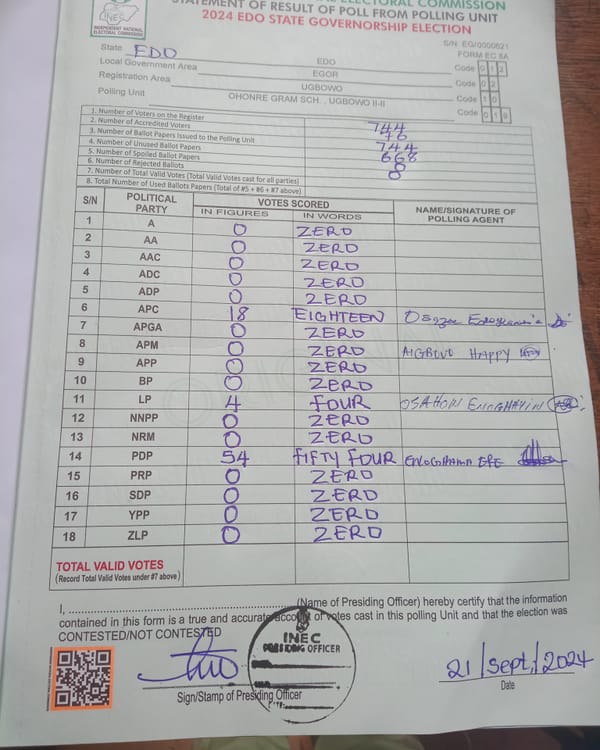 INEC
INDEPENDENT NATIONAL
ELECTORAL COMMISSION
ELECTORAL COMMISSION
STATEMENT OF RESULT OF POLL FROM POLLING UNIT
2024 EDO STATE GOVERNORSHIP ELECTION
S/N: EG/0000621
FORM EC 8A
State EDO
Local Government Area EDO Code 0 1 2
Registration Area EGOR Code 0 2
UGBOWO Code 1 0
Polling Unit OHONRE GRAM SCH. , UGBOWO II-II Code 0 1 0
1. Number of Voters on the Register 744
2. Number of Accredited Voters 76
3. Number of Ballot Papers Issued to the Polling Unit 744
4. Number of Unused Ballot Papers 668
5. Number of Spoiled Ballot Papers 0
6. Number of Rejected Ballots 0
7. Number of Total Valid Votes (Total Valid Votes cast for all parties)
8. Total Number of Used Ballots Papers (Total of #5 + #6 + #7 above)
S/N POLITICAL PARTY VOTES SCORED NAME/SIGNATURE OF POLLING AGENT
IN FIGURES IN WORDS
1 A 0 ZERO
2 AA 0 ZERO
3 AAC 0 ZERO
4 ADC 0 ZERO
5 ADP 0 ZERO
6 APC 18 EIGHTEEN
7 APGA 0 ZERO
8 APM 0 ZERO AIGBOVO HAPPY
9 APP 0 ZERO
10 BP 0 ZERO
11 LP 4 FOUR OSAHON
12 NNPP 0 ZERO
13 NRM 0 ZERO
14 PDP 54 FIFTY FOUR
15 PRP 0 ZERO
16 SDP 0 ZERO
17 YPP 0 ZERO
18 ZLP 0 ZERO
TOTAL VALID VOTES
(Record Total Valid Votes under #7 above)
I, ............................................................(Name of Presiding Officer) hereby certify that the information
contained in this form is a true and accurate account of votes cast in this polling Unit and that the election was
CONTESTED/NOT CONTESTED
INEC
PRESIDING OFFICER
21/Sept,/2024
Sign/Stamp of Presiding Officer
Date